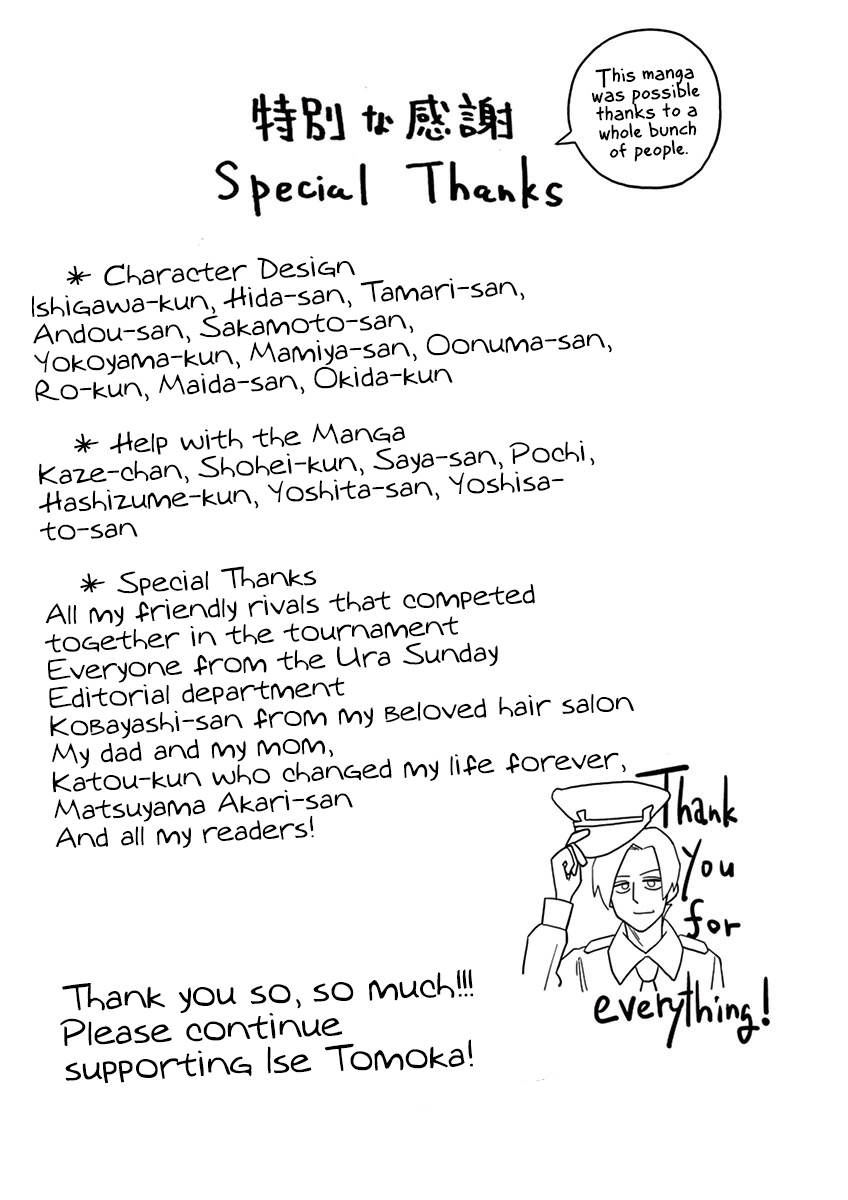 特別な感謝
Special Thanks
This manga
was possible
thanks to a
whole bunch
of people.
* Character Design
Ishigawa-kun, Hida-san, Tamari-san,
Andou-san, Sakamoto-san,
Yokoyama-kun, Mamiya-san, Oonuma-san,
Ro-kun, Maida-san, Okida-kun
* Help with the Manga
Kaze-chan, Shohei-kun, Saya-san, Pochi,
Hashizume-kun, Yoshita-san, Yoshisa-
to-san
* Special Thanks
All my friendly rivals that competed
together in the tournament
Everyone from the Ura Sunday
Editorial department
Kobayashi-san from my beloved hair salon
My dad and my mom,
Katou-kun who changed my life forever,
Matsuyama Akari-san
And all my readers!
Thank
you
for
everything!
Thank you so, so much!!!
Please continue
supporting Ise Tomoka!